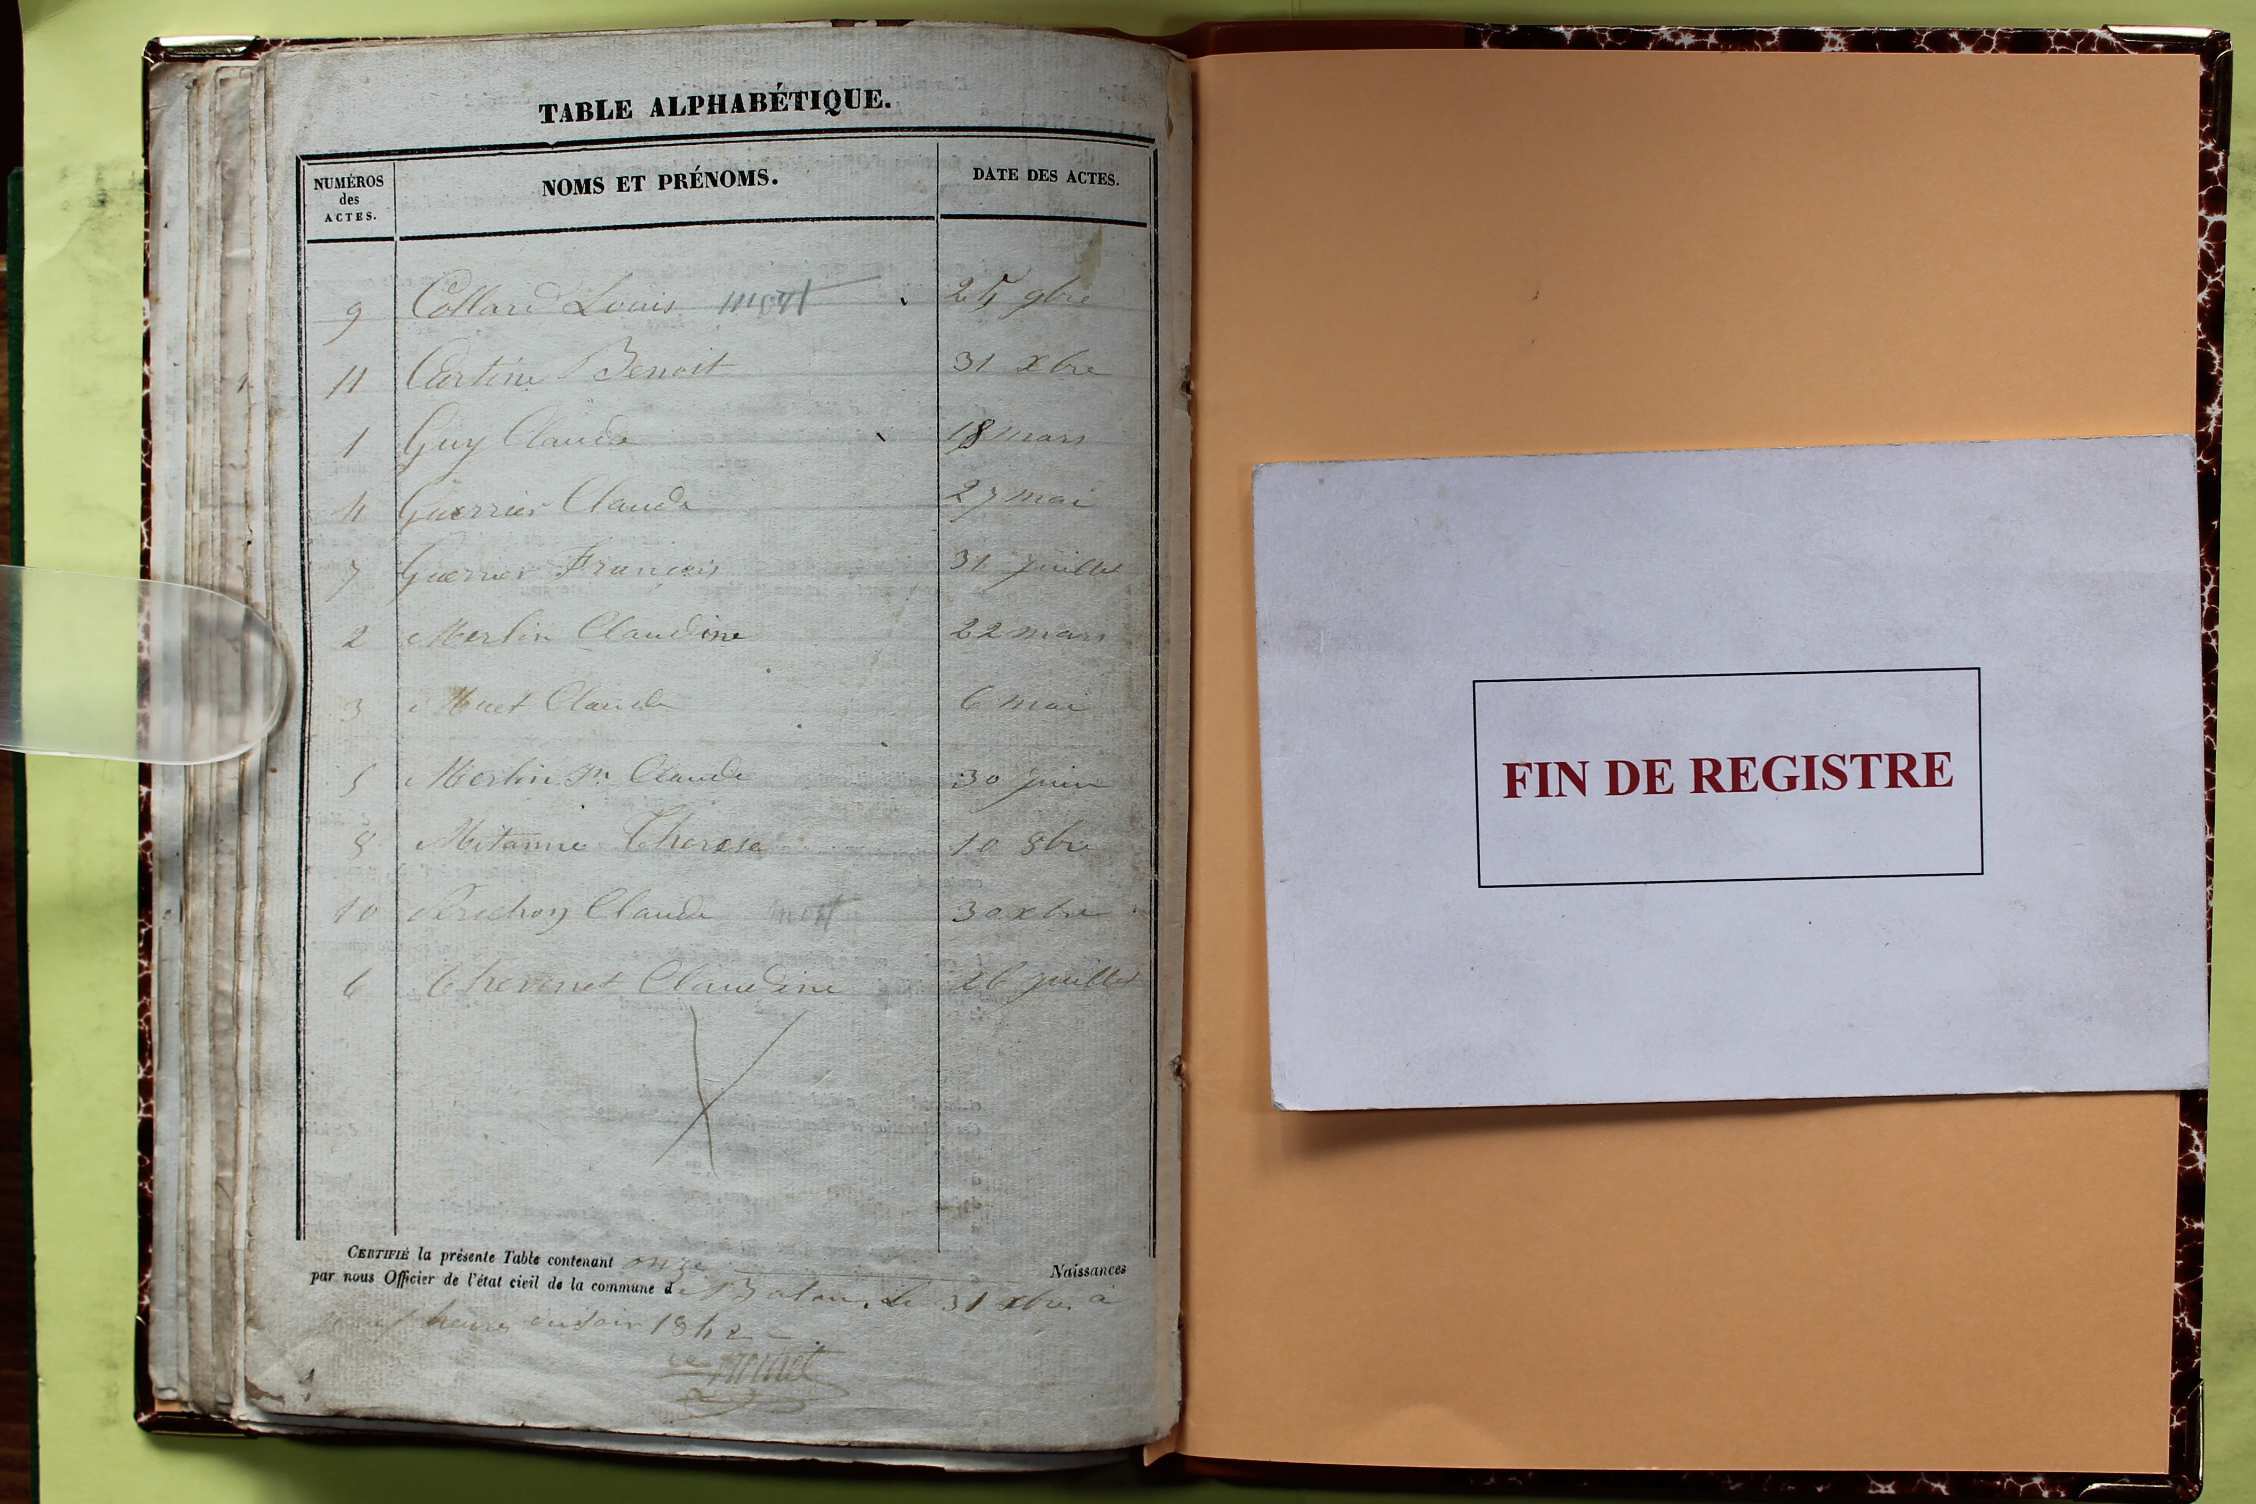 TABLE ALPHABÉTIQUE.
NUMÉROS des ACTES. NOMS ET PRÉNOMS. DATE DES ACTES.
9 Collard Louis mort 24 9bre
11 Cartine Benoit 31 xbre
1 Guy Claude 18 mars
4 Guerrier Claude 27 mai
7 Guerrier François 31 juillet
2 Merlin Claudine 22 mars
3 Muet Claude 6 mai
5 Merlin Claude 30 juin
8 Mitanne Therese 10 8bre
10 Claude mort 30 xbre
6 Thevenet Claudine 26 juillet
CERTIFIÉ la présente Table contenant onze Naissances
par nous Officier de l'état civil de la commune de Le 31 xbre à
heures du soir 1842
FIN DE REGISTRE